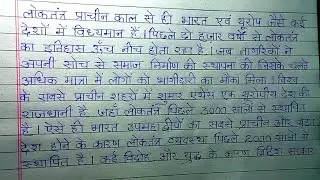 लोकतंत्र प्राचीन काल से ही भारत एवं यूरोप जैसे कई
देशों में विद्यमान हैं। पिछले दो हजार वर्षों से लोकतंत्र
का इतिहास ऊंच नीच होता रहा है। जब नागरिकों ने
अपनी सोच से समाज निर्माण की स्थापना की जिसके चलते
अधिक मात्रा में लोगों को भागीदारी का मौका मिला। विश्व
के सबसे प्राचीन शहरों में शुमार एथेंस एक यूरोपीय देश की
राजधानी है। जहाँ लोकतंत्र पिछले 3000 सालों से स्थापित
है। ऐसे ही भारत उपमहाद्वीप का सबसे प्राचीन और बड़ा
देश होने के कारण लोकतंत्र व्यवस्था पिछले 2000 सालों से
स्थापित हैं। कई विद्रोह और युद्ध के कारण ब्रिटिश सरकार